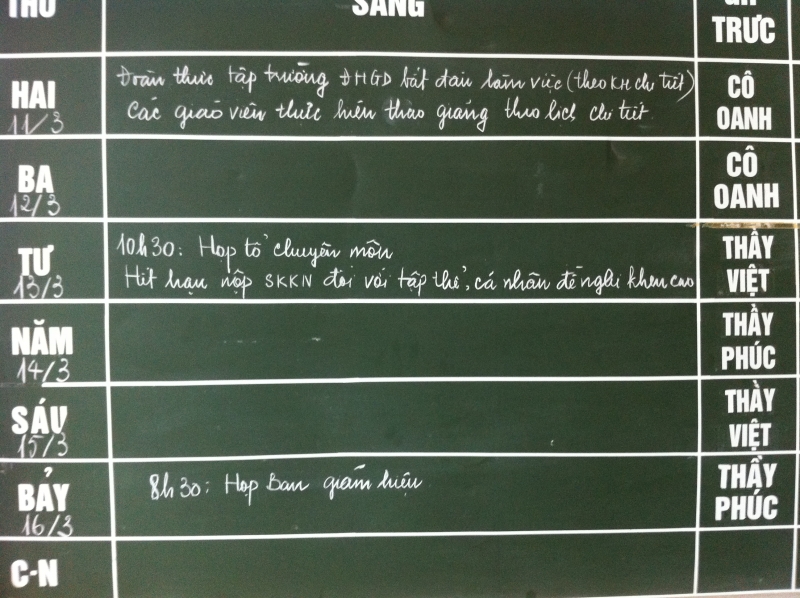 THỨ
SÁNG
TRỰC
HAI
11/3
Đoàn thực tập trường ĐHGD bắt đầu làm việc (theo KH chi tiết)
Các giáo viên thực hiện thao giảng theo lịch chi tiết
CÔ
OANH
BA
12/3
CÔ
OANH
TƯ
13/3
10h30: Họp tổ chuyên môn
Hết hạn nộp SKKN đối với tập thể, cá nhân đề nghị khen cao
THẦY
VIỆT
NĂM
14/3
THẦY
PHÚC
SÁU
15/3
THẦY
VIỆT
BẢY
16/3
8h30: Họp Ban giám hiệu
THẦY
PHÚC
C-N